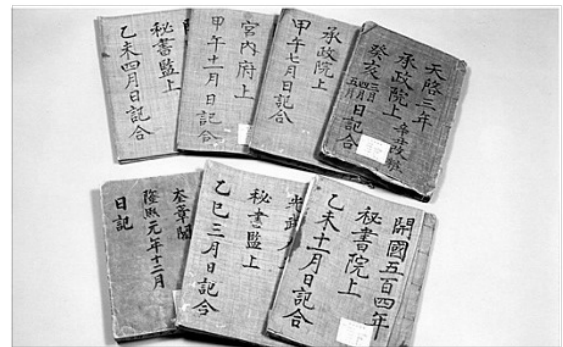 天啓三年
承政院上
癸亥 三月 四月 五月 日記合
承政院上
甲午七月日記合
宮内府上
甲午十一月日記合
秘書監上
乙未四月日記合
開國五百四年
秘書院上
乙未十一月日記合
光武
秘書監上
乙巳三月日記合
奎章閣
隆熙元年十二月
日記